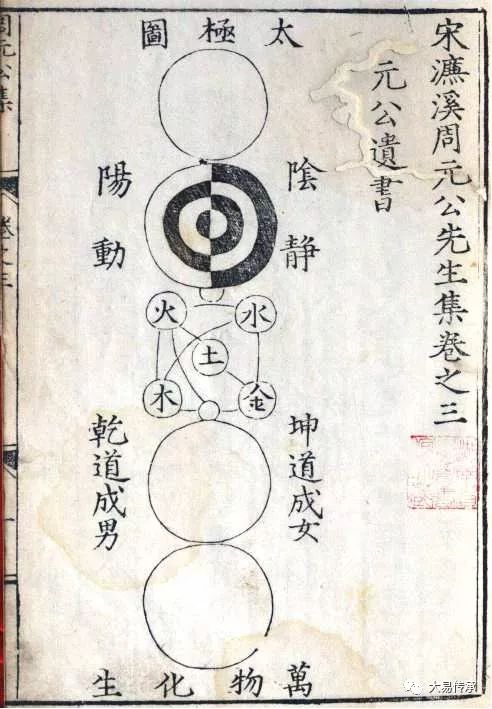 宋濂溪周元公先生集卷之三
元公遺書
太極圖
陰靜
陽動
火
水
土
木
金
坤道成女
乾道成男
萬物化生
周元公集
卷之三
一
大易传承